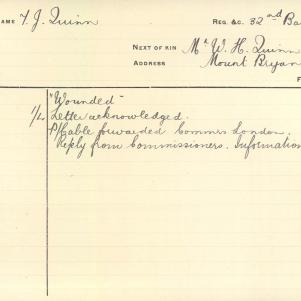 NAME T. J. Quinn REG. &C. 32nd Ba
NEXT OF KIN Mr W. H. Quinn
ADDRESS Mount Bryan
"Wounded"
Letter acknowledged.
Cable forwarded Commrs London.
Reply from Commissioners. Information